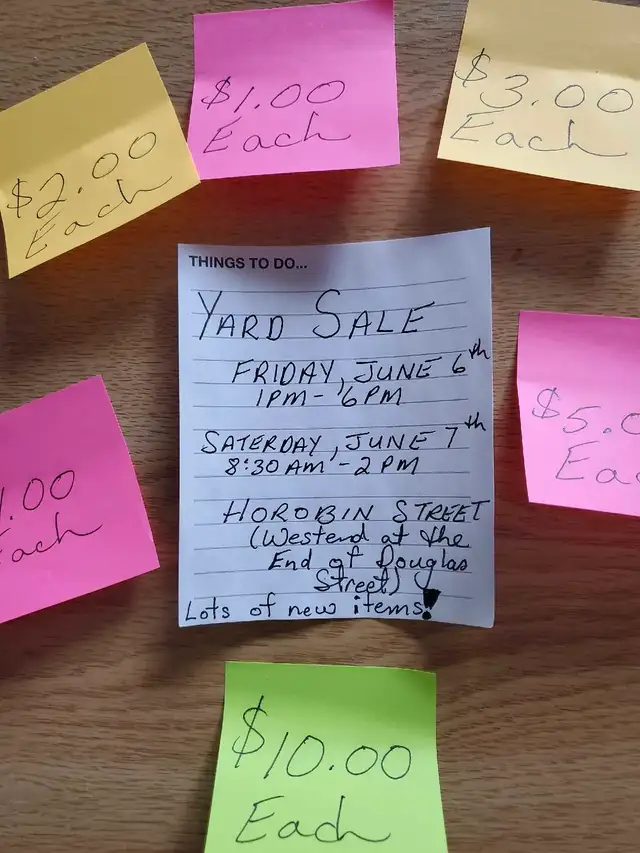 $1.00
Each
$3.00
Each
$2.00
Each
THINGS TO DO...
YARD SALE
FRIDAY, JUNE 6th
1PM - 6PM
SATERDAY, JUNE 7th
8:30 AM - 2 PM
HOROBIN STREET
(Westend at the
End of Douglas
Street)
Lots of new items!
$5.0
Ea
.00
Each
$10.00
Each